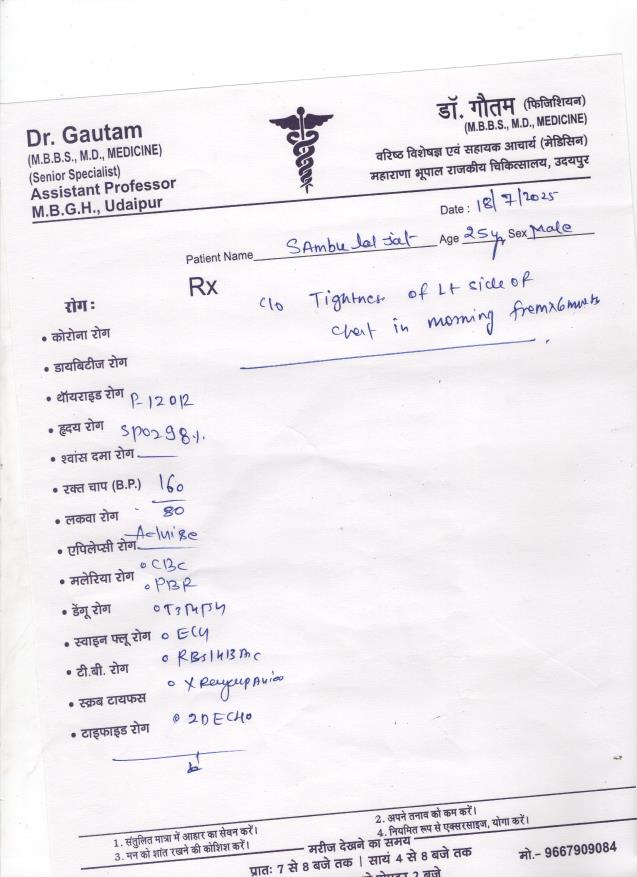 Dr. Gautam
(M.B.B.S., M.D., MEDICINE)
(Senior Specialist)
Assistant Professor
M.B.G.H., Udaipur
डॉ. गौतम (फिजिशियन)
(M.B.B.S., M.D., MEDICINE)
वरिष्ठ विशेषज्ञ एवं सहायक आचार्य (मेडिसिन)
महाराणा भूपाल राजकीय चिकित्सालय, उदयपुर
Date : 18/7/2025
Patient Name SAmbu lal Jat Age 25y Sex Male
Rx
c/o Tightness of Lt side of
chest in morning from x 6 months
रोग :
• कोरोना रोग
• डायबिटीज रोग
• थॉयराइड रोग P-120R
• हृदय रोग SPO298%
• श्वांस दमा रोग
• रक्त चाप (B.P.) 160
80
• लकवा रोग
Advise
• एपिलेप्सी रोग
• मलेरिया रोग • CBC
• PBR
• डेंगू रोग • T3T4TSH
• स्वाइन फ्लू रोग • ECG
• टी.बी. रोग • RBS/HBA1c
• स्क्रब टायफस • X Ray
• टाइफाइड रोग • 2DECHO
1. संतुलित मात्रा में आहार का सेवन करें।
2. अपने तनाव को कम करें।
3. मन को शांत रखने की कोशिश करें।
4. नियमित रूप से एक्सरसाइज, योगा करें।
मरीज देखने का समय
प्रातः 7 से 8 बजे तक | सायं 4 से 8 बजे तक
मो.- 9667909084
2 बजे